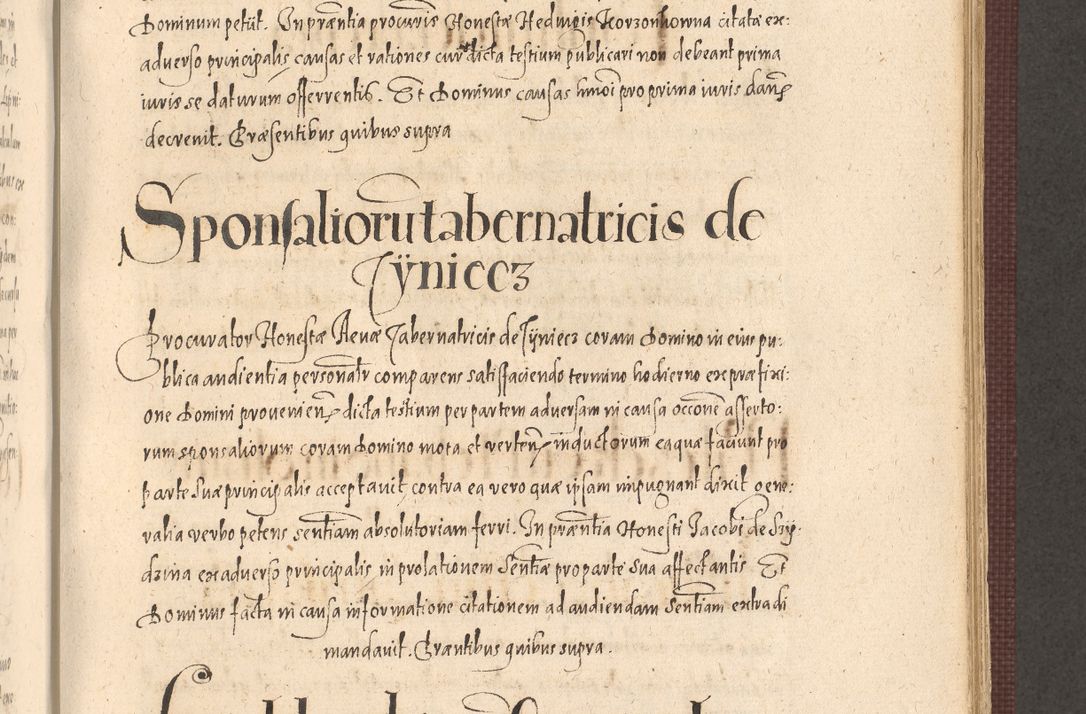 Dominum petiit. In præntia procuris Honestæ Hedvigis Korzonkowna citatæ ex:
adverso principalis causas et rationes cur dicta testium publicari non debeant prima
iuris se daturum offerrentis. Et Dominus causas hmoi pro prima iuris dand
decrevit. Præsentibus quibus supra
Sponsaliorū tabernatricis de
Tÿniecz
Procurator Honestæ Annæ Tabernatricis de Tÿniecz coram Domino in eius pu:
blica audientia personalr comparens satisfaciendo termino hodierno ex præfixi:
one Domini provenien dicta testium per partem adversam in causa occone asserto:
rum sponsaliorum coram Domino mota et verten inductorum ea quæ faciunt pro
parte suæ principalis acceptavit contra ea vero quæ ipsam impugnant dixit gene:
ralia verbo petens sentiam absolutoriam ferri. In præntia Honesti Jacobi de
dzina ex adverso principalis in prolationem sentiæ pro parte sua affectantis Et
Dominus facta in causa informatione citationem ad audiendam sentiam extradi
mandavit. Præntibus quibus supra.